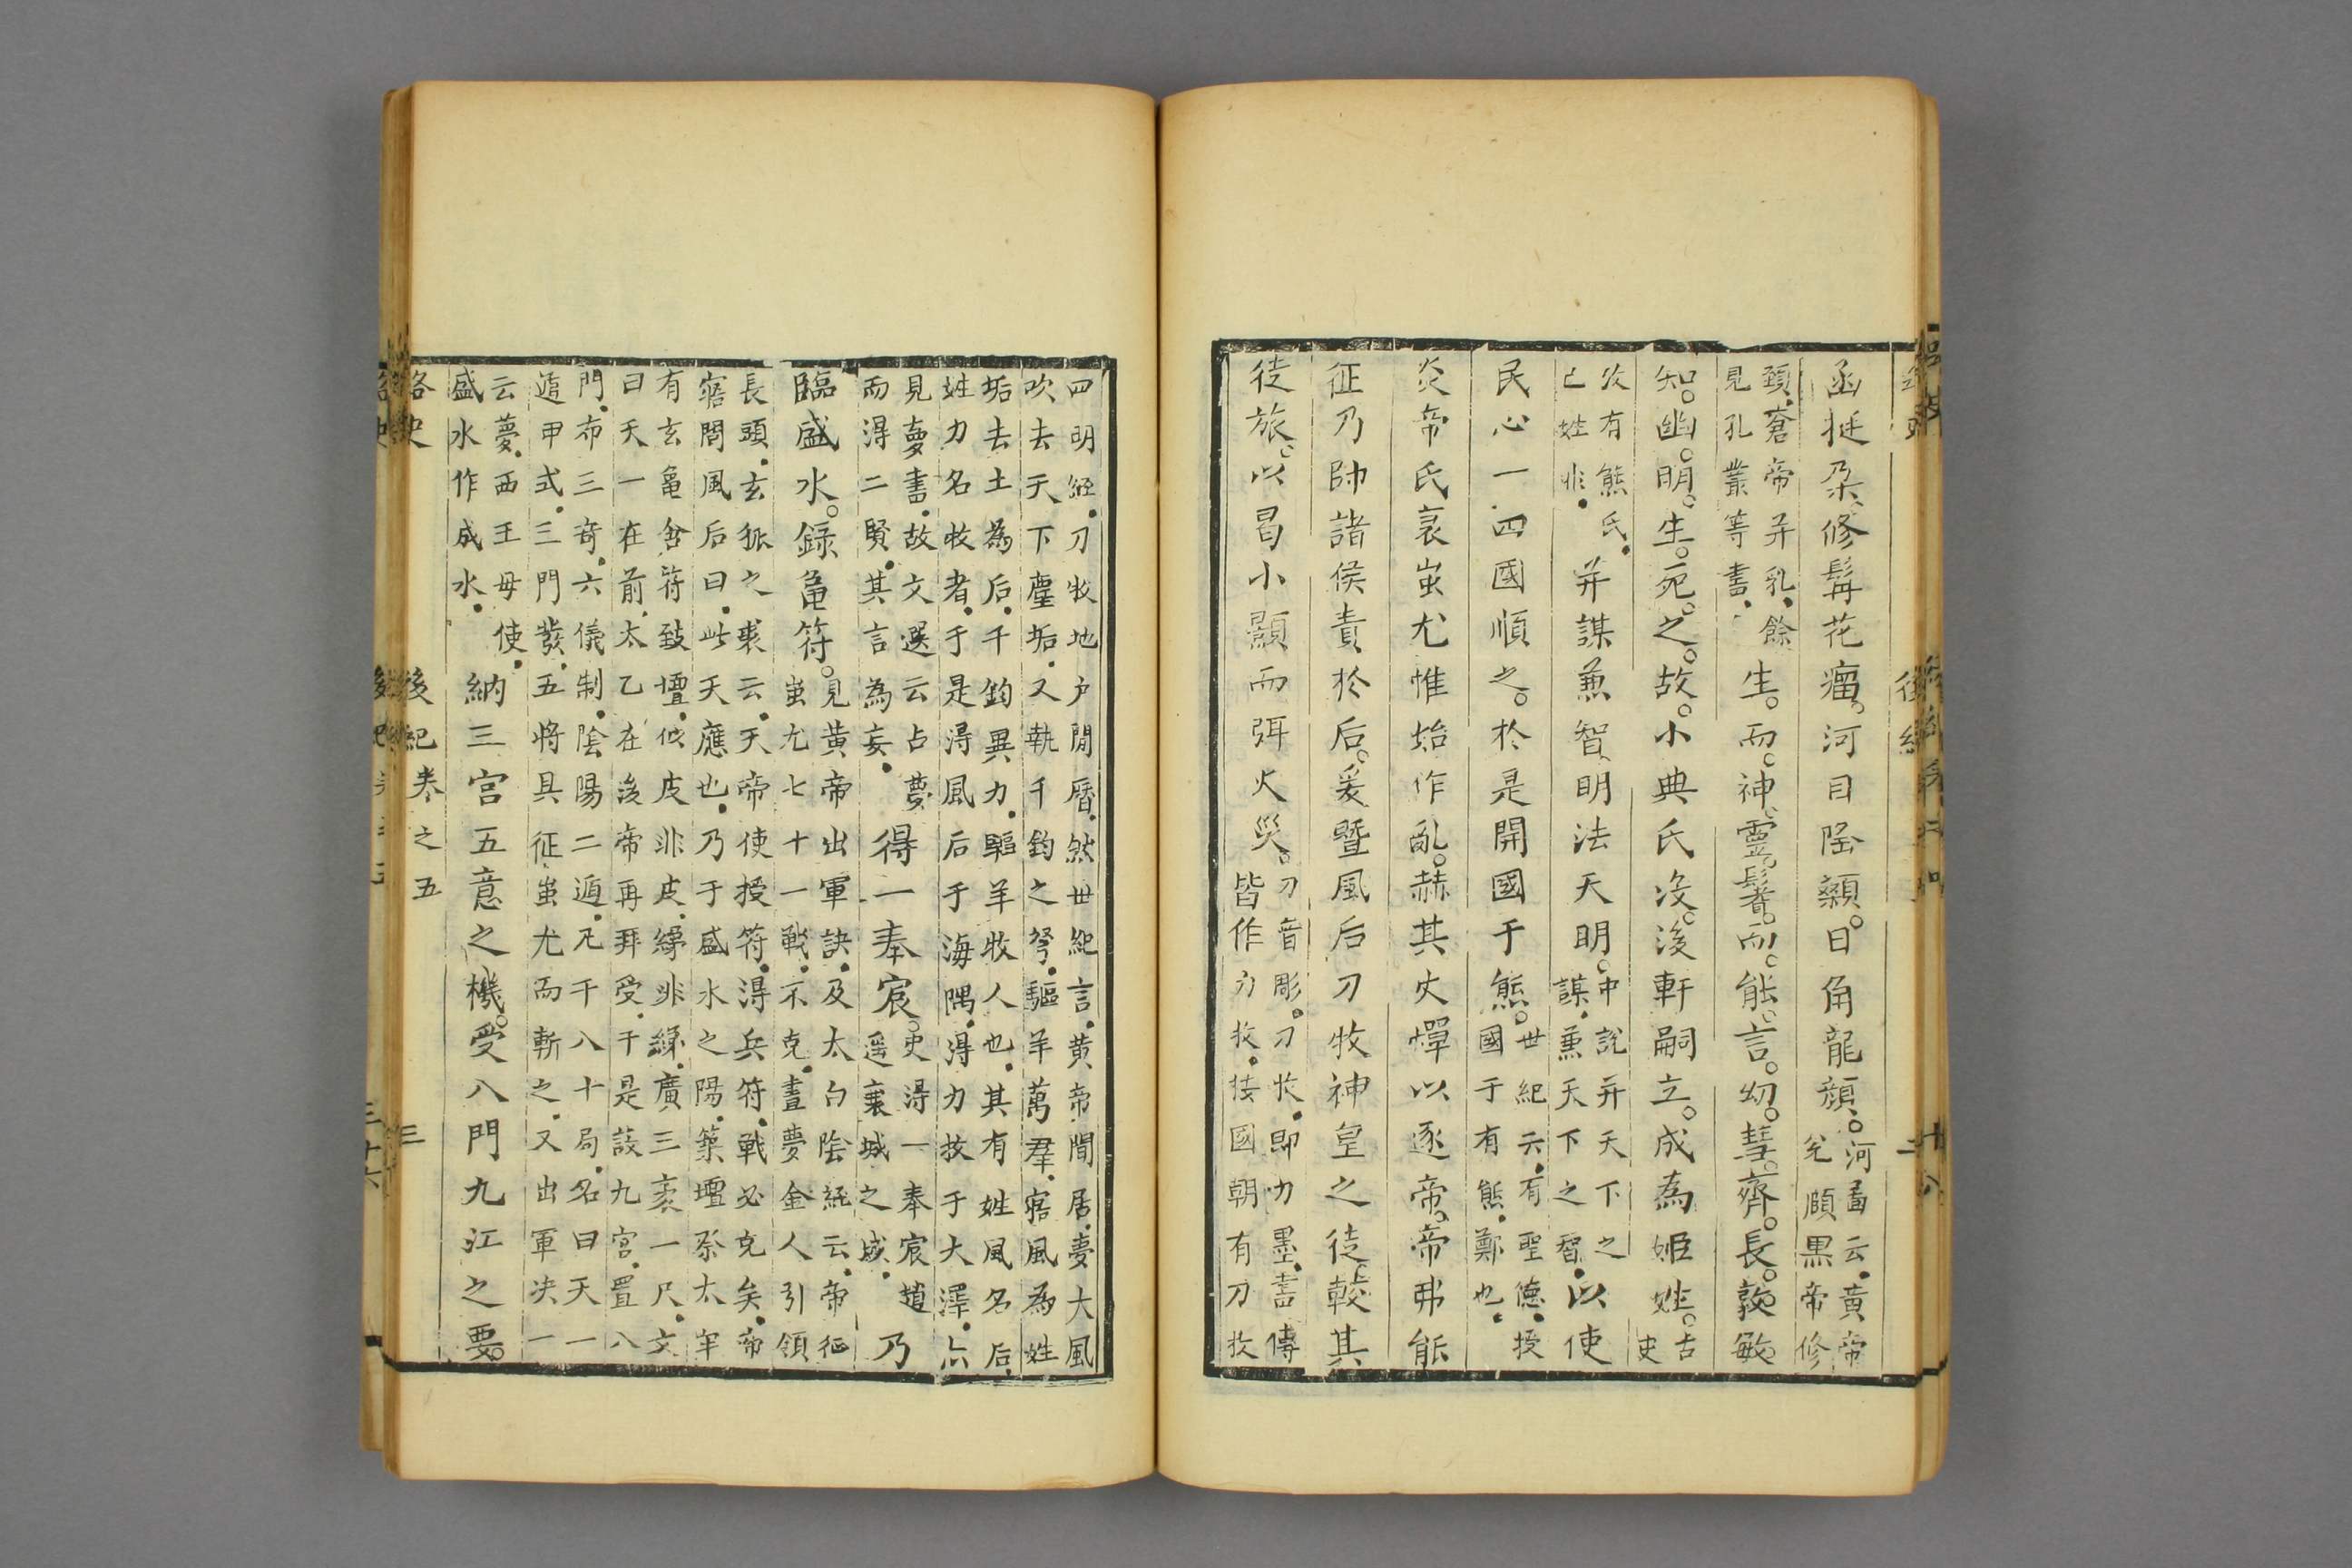 函挺朶修髯花瘤河目隆顙日角龍顏河圖云黃帝
兊頤黑帝修
頸蒼帝并乳餘
見孔叢等書生而神靈鬊而能言幼慧齊長敦敏
知幽明生死之故小典氏没後軒嗣立成為姬姓古
史
次有熊氏
己姓非并謀兼智明法天明中説并天下之
謀兼天下之智以使
民心一四國順之於是開國于熊世紀云有聖德授
國于有熊鄭也
炎帝氏衰蚩尤惟始作亂赫其火燀以逐帝帝弗能
征乃帥諸侯責於后爰暨風后刀牧神皇之徒較其
徒旅以曷小顥而弭火災刀音彫刀牧即力墨書傳
皆作力牧按國朝有刀牧
四明經刀牧地户閒曆然世紀言黃帝閒居夢大風
吹去天下塵垢又執千鈞之弩驅羊萬羣寤風為姓
垢去土為后千鈞異力驅羊牧人也其有姓風名后
姓力名牧者于是得風后于海隅得力牧于大澤亦
見夢書故文選云占夢
而得二賢其言為妄得一奉宸史得一奉宸趙
遥襄城之域乃
臨盛水録龜符見黃帝出軍訣及太白陰經云帝征
蚩尤七十一戰不克晝夢金人引領
長頭玄狐之裘云天帝使授符得兵符戰必克矣帝
寤問風后曰此天應也乃于盛水之陽築壇祭太牢
有玄龜含符致壇似皮非皮綈非綈廣三袤一尺文
曰天一在前太乙在後帝再拜受于是設九宮置八
門布三奇六儀制陰陽二遁凡千八十局名曰天一
遁甲式三門發五將具征蚩尤而斬之又出軍决一
云夢西王母使
盛水作成水納三宮五意之機受八門九江之要
路史
後紀卷之五
三